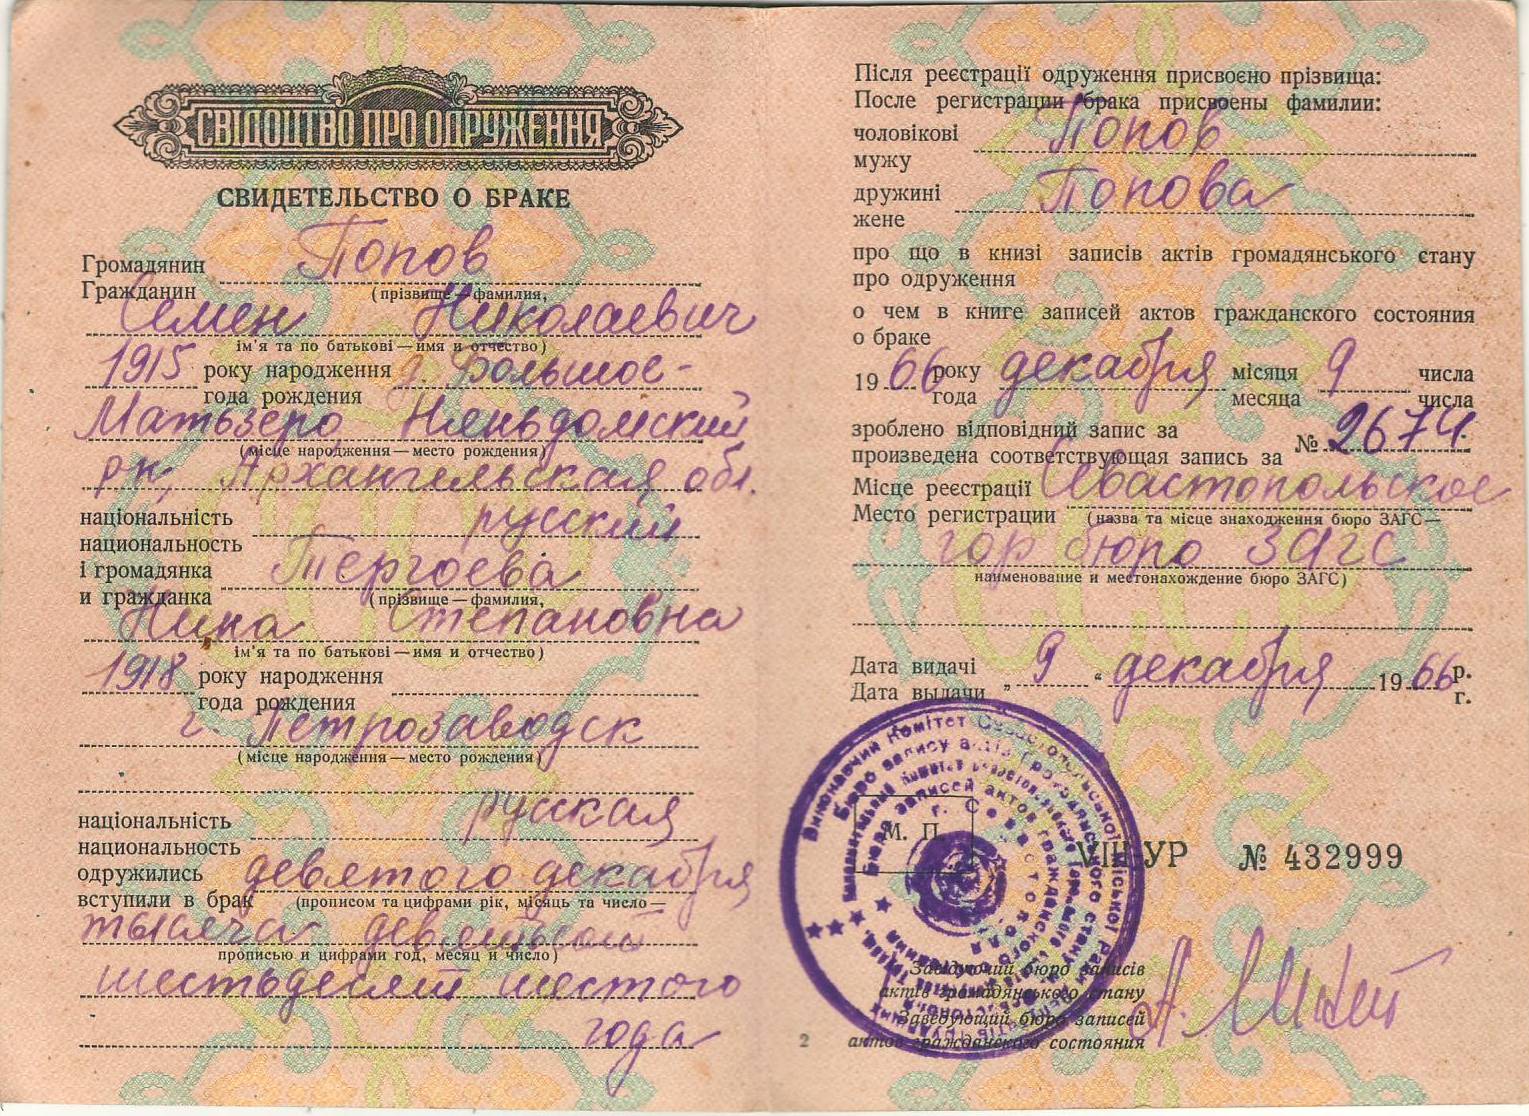 СВІДОЦТВО ПРО ОДРУЖЕННЯ
СВИДЕТЕЛЬСТВО О БРАКЕ
Громадянин Попов
Гражданин (прізвище — фамилия,
Семен Николаевич
ім'я та по батькові — имя и отчество)
1915 року народження д. Большое-
года рождения
Матьзеро, Няньдомский
(місце народження — место рождения)
рн, Архангельская обл.
національність русский
национальность
і громадянка Тергоева
и гражданка (прізвище — фамилия,
Нина Степановна
ім'я та по батькові — имя и отчество)
1918 року народження
года рождения
г. Петрозаводск
(місце народження — место рождения)
національність русская
национальность
одружились девятого декабря
вступили в брак (прописом та цифрами рік, місяць та число —
тысяча девятьсот
прописью и цифрами год, месяц и число)
шестьдесят шестого
года
Після реєстрації одруження присвоєно прізвища:
После регистрации брака присвоены фамилии:
чоловікові Попов
мужу
дружині Попова
жене
про що в книзі записів актів громадянського стану
про одруження
о чем в книге записей актов гражданского состояния
о браке
19 66 року декабря місяця 9 числа
года месяца числа
зроблено відповідний запис за № 2674
произведена соответствующая запись за
Місце реєстрації Севастопольское
Место регистрации (назва та місце знаходження бюро ЗАГС —
гор бюро ЗАГС
наименование и местонахождение бюро ЗАГС)
Дата видачі „ 9 “ декабря 19 66 р.
Дата выдачи г.
Виконавчий Комітет Севастопольської міської Ради
Бюро запису актів громадянського стану
Бюро записей актов гражданского
г. Севастополя
М. П.
УР № 432999
Завідуючий бюро записів
актів громадянського стану
Заведующий бюро записей
актов гражданского состояния
2